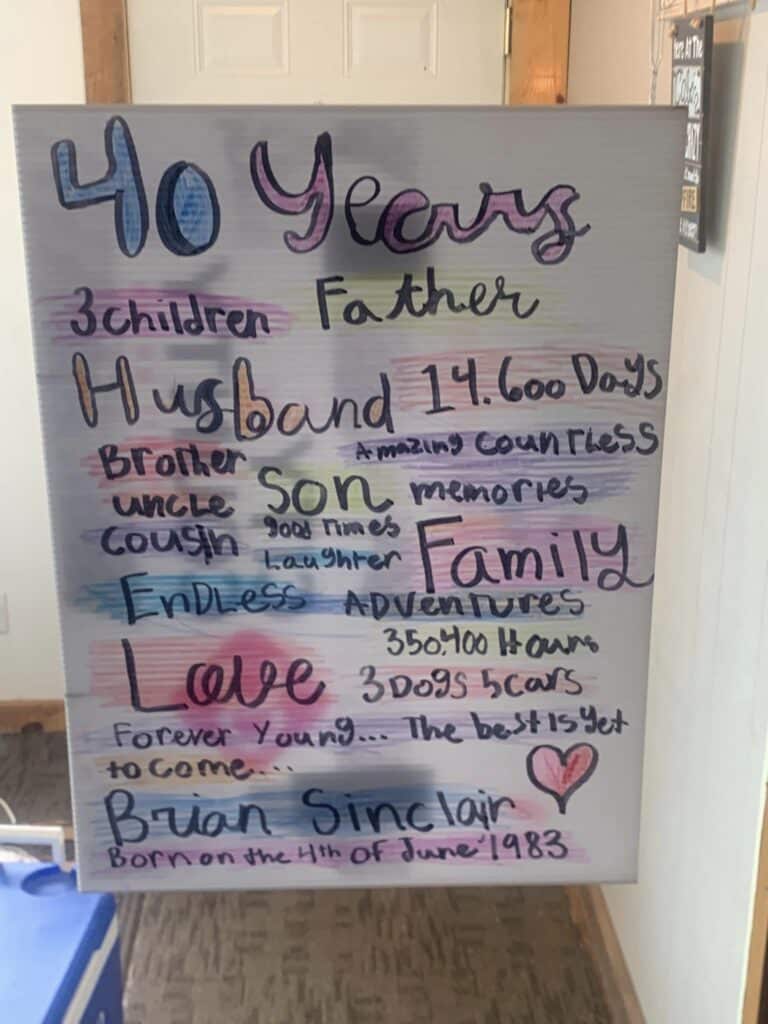 40 Years
3 children Father
Husband 14.600 Days
Brother Amazing Countless
uncle Son memories
cousin good Times
Laughter Family
Endless Adventures
350,400 Hours
Love 3 Dogs 5 cars
Forever Young... The best is yet
to come....
Brian Sinclair
Born on the 4th of June 1983
Here At The